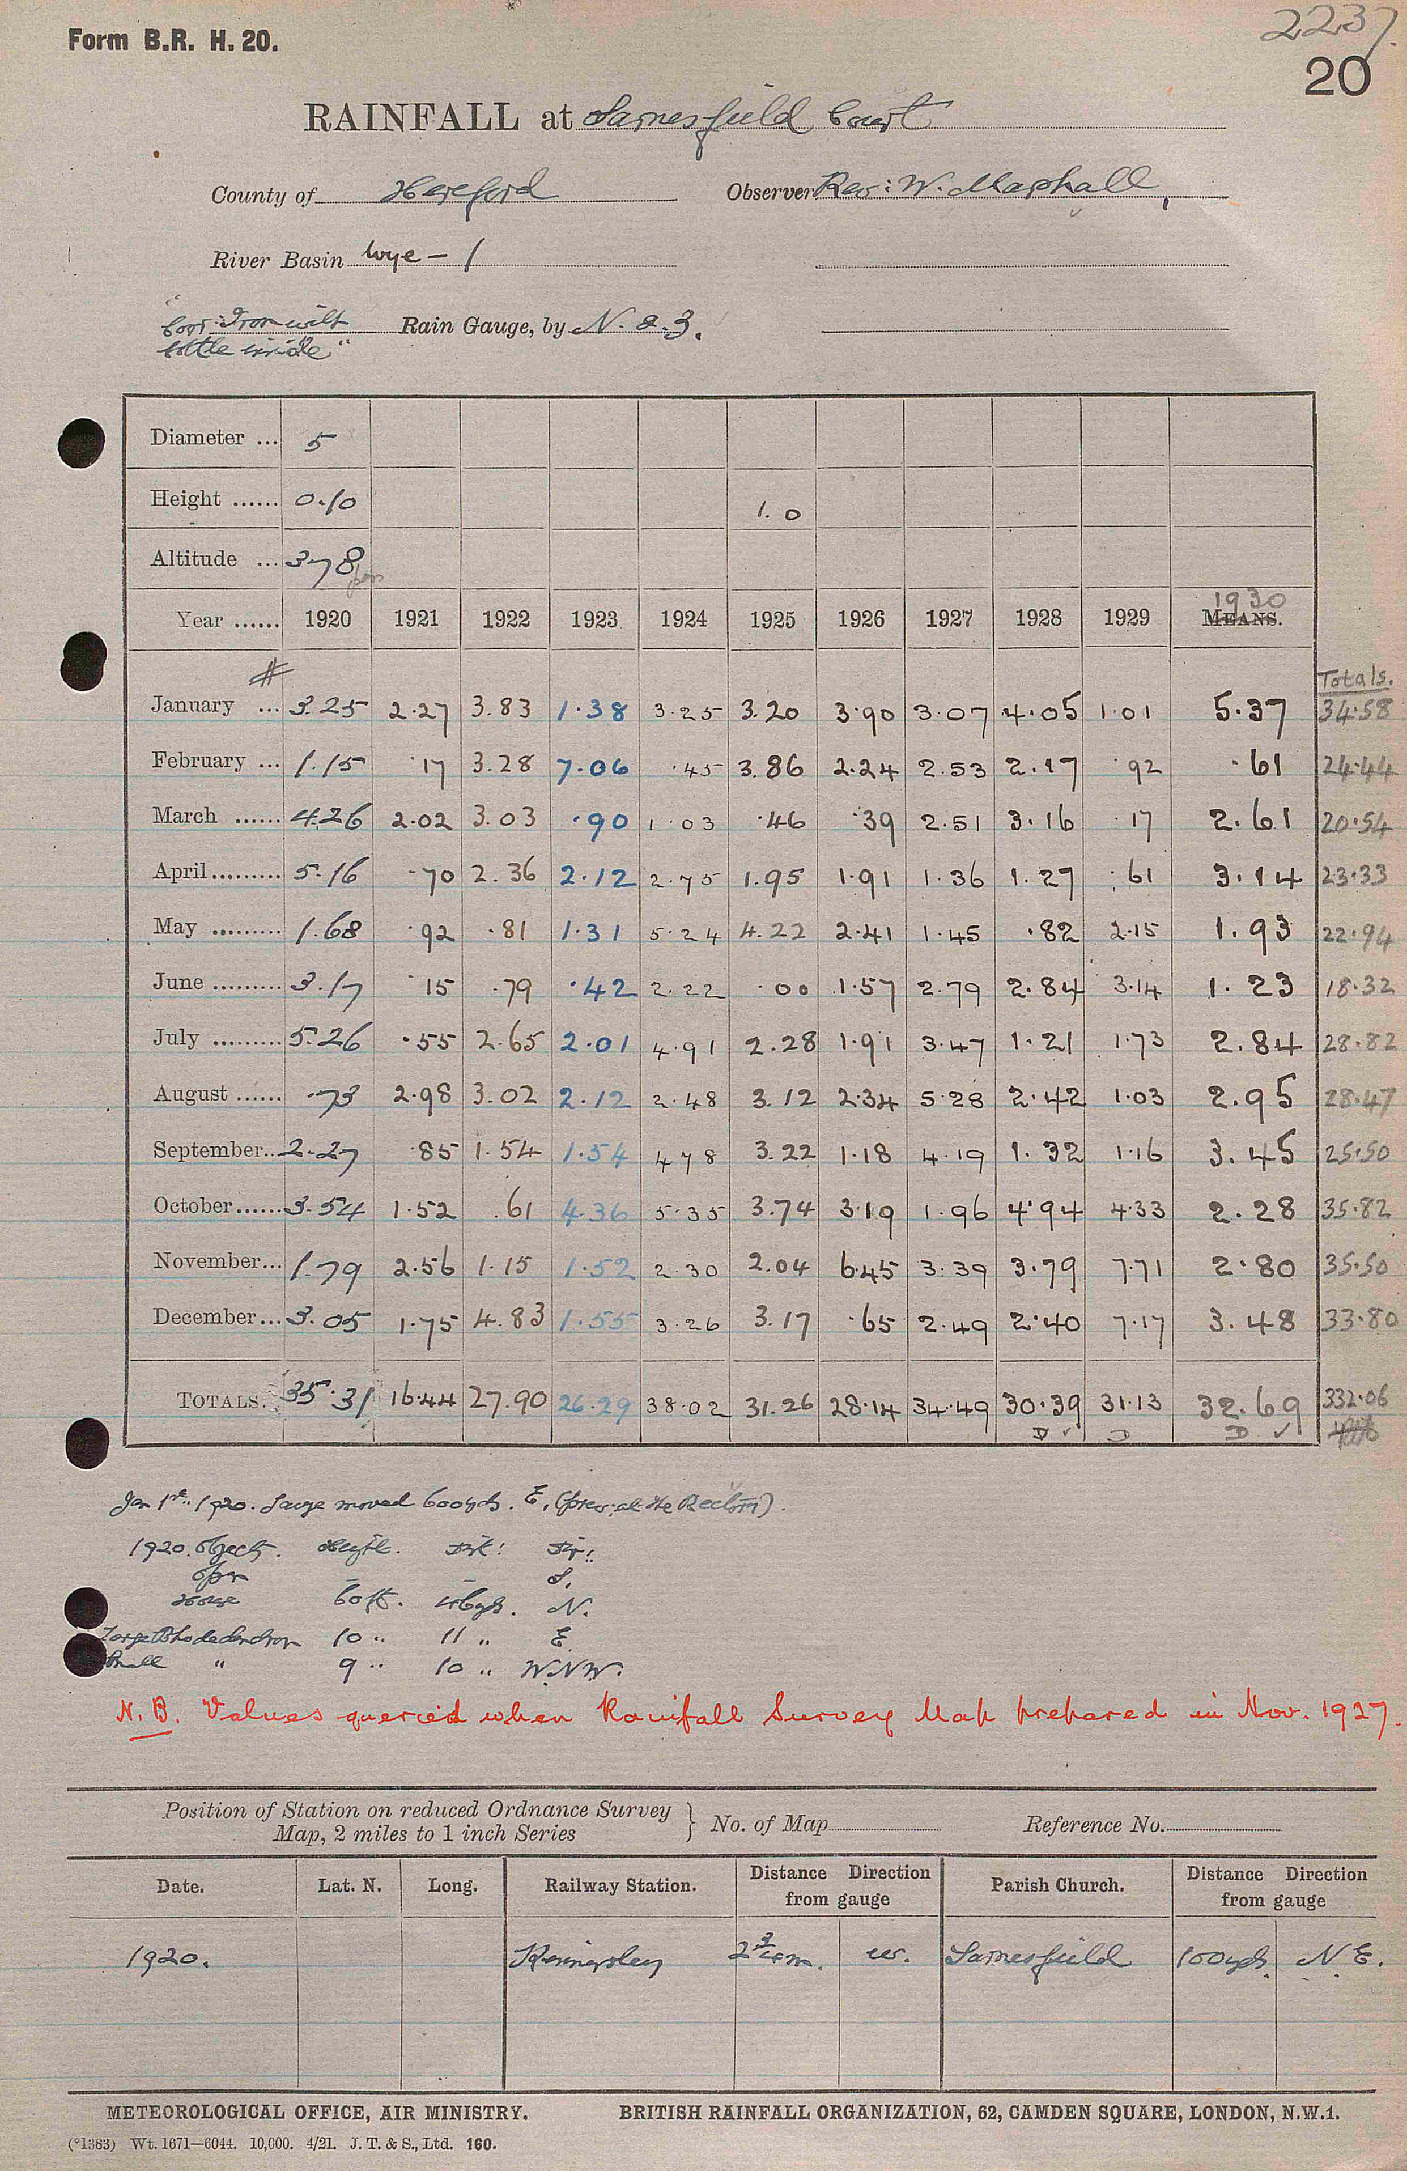 2237.
Form B.R. H. 20.
20
RAINFALL at Sarnesfield Court
County of Hereford Observer Rev: W. Marshall
River Basin Wye – 1
"Corr: Iron with Rain Gauge, by N. & Z.
bottle inside"
Diameter ... 5
Height ...... 0.10 1.0
Altitude ... 378
1930
Year ...... 1920 1921 1922 1923 1924 1925 1926 1927 1928 1929 MEANS.
# Totals.
January ... 3.25 2.27 3.83 1.38 3.25 3.20 3.90 3.07 4.05 1.01 5.37 34.58
February ... 1.15 .17 3.28 7.06 .45 3.86 2.24 2.53 2.17 .92 .61 24.44
March ...... 4.26 2.02 3.03 .90 1.03 .46 .39 2.51 3.16 .17 2.61 20.54
April ......... 5.16 .70 2.36 2.12 2.75 1.95 1.91 1.36 1.27 .61 3.14 23.33
May ......... 1.68 .92 .81 1.31 5.24 4.22 2.41 1.45 .82 2.15 1.93 22.94
June ......... 3.17 .15 .79 .42 2.22 .00 1.57 2.79 2.84 3.14 1.23 18.32
July ......... 5.26 .55 2.65 2.01 4.91 2.28 1.91 3.47 1.21 1.73 2.84 28.82
August ...... .73 2.98 3.02 2.12 2.48 3.12 2.34 5.28 2.42 1.03 2.95 28.47
September... 2.27 .85 1.54 1.54 4.78 3.22 1.18 4.19 1.32 1.16 3.45 25.50
October...... 3.54 1.52 .61 4.36 5.35 3.74 3.19 1.96 4.94 4.33 2.28 35.82
November... 1.79 2.56 1.15 1.52 2.30 2.04 6.45 3.39 3.79 7.71 2.80 35.50
December... 3.05 1.75 4.83 1.55 3.26 3.17 .65 2.49 2.40 7.17 3.48 33.80
TOTALS. 35.31 16.44 27.90 26.29 38.02 31.26 28.14 34.49 30.39 31.13 32.69 332.06
D ✓ D D ✓
Jan 1st. 1920. Gauge moved 600yds. E. (prev: at the Rectory).
1920. Objects. Height. Dist: Dir:
Open – – S.
House 60ft. 46yds. N.
Large Rhododendron 10 " 11 " E
Small " 9 " 10 " W.N.W.
N.B. Values queried when Rainfall Survey Map prepared in Nov. 1927.
Position of Station on reduced Ordnance Survey
Map, 2 miles to 1 inch Series } No. of Map Reference No.
Date. Lat. N. Long. Railway Station. Distance Direction from gauge Parish Church. Distance Direction from gauge
1920. Kinnersley 2 3/4 m. W. Sarnesfield 100yds. N.E.
METEOROLOGICAL OFFICE, AIR MINISTRY. BRITISH RAINFALL ORGANIZATION, 62, CAMDEN SQUARE, LONDON, N.W.1.
(*1383) Wt. 1671—6044. 10,000. 4/21. J. T. & S., Ltd. 160.